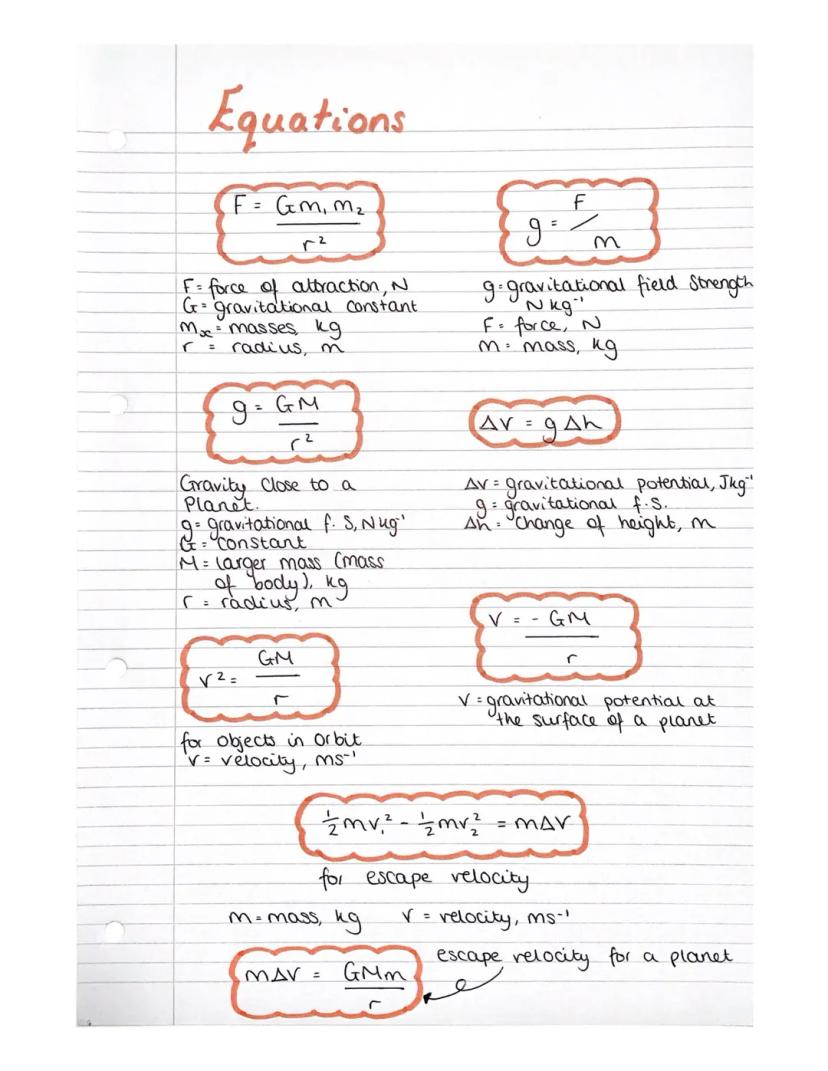 Equations
F = Gm₁m₂ / r²
g = F / m
F = force of attraction, N
G = gravitational constant
mₓ = masses, kg
r = radius, m
g = gravitational field strength
N kg⁻¹
F = force, N
m = mass, kg
g = GM / r²
ΔV = gΔh
Gravity close to a
Planet.
g = gravitational f. S, N kg⁻¹
G = constant
M = larger mass (mass
of body), kg
r = radius, m
ΔV = gravitational potential, Jkg⁻¹
g = gravitational f.s.
Δh = change of height, m
V = - GM / r
V = gravitational potential at
the surface of a planet
v² = GM / r
for objects in orbit
v = velocity, ms⁻¹
½mv₁² - ½mv₂² = mΔV
for escape velocity
m = mass, kg v = velocity, ms⁻¹
mΔV = GMm / r
escape velocity for a planet